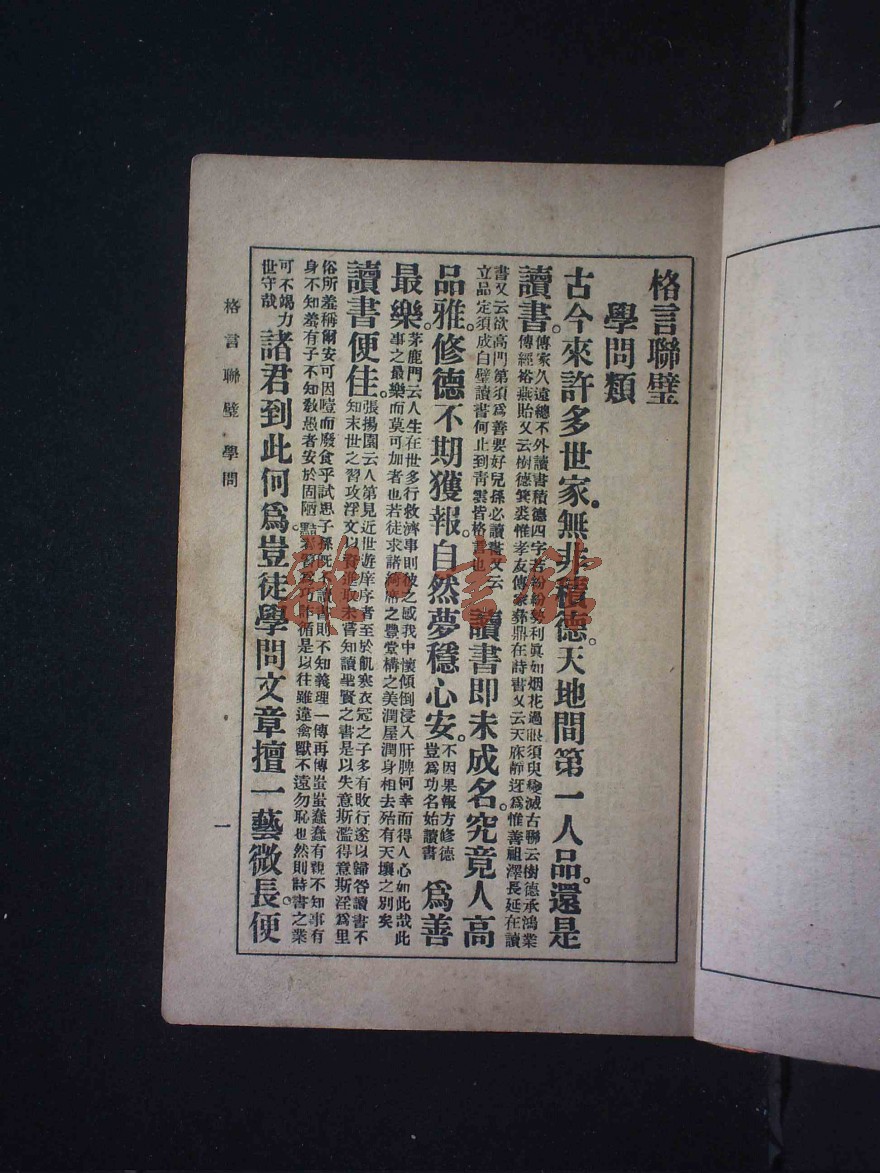 格言聯璧
學問類
古今來許多世家。無非積德。天地間第一人品。還是
讀書。
傳家久遠總不外讀書積德四字若紛紛勢利眞如烟花過眼須臾變滅古聯云樹德承鴻業
傳經裕燕貽又云樹德箕裘惟孝友傳家彝鼎在詩書又云天庥靜迓爲惟善祖澤長延在讀
書又云欲高門第須爲善要好兒孫必讀書又云
立品定須成白璧讀書何止到靑雲皆格言也
讀書即未成名。究竟人高
品雅。修德不期獲報。自然夢穩心安。
不因果報方修德
豈爲功名始讀書
爲善
最樂。
茅鹿門云人生在世多行救濟事則彼之感我中懷傾倒浸入肝脾何幸而得人心如此哉此
事之最樂而莫可加者也若徒求諸綺席之豐堂構之美潤屋潤身相去殆有天壤之別矣
讀書便佳。
張揚園云人第見近世遊庠序者至於飢寒衣冠之子多有敗行遂以歸咎讀書不
知末世之習攻浮文以資進取未嘗知讀聖賢之書是以失意斯濫得意斯淫爲里
俗所羞稱爾安可因噎而廢食乎試思子孫既不讀書則不知義理一傳再傳蚩蚩蠢蠢有親不知事有
身不知羞有子不知敎愚者安於固陋黠者習爲巧詐循是以往雖違禽獸不遠勿恥也然則詩書之業
可不竭力
世守哉
諸君到此何爲。豈徒學問文章擅一藝微長。便
格言聯璧 學問
一